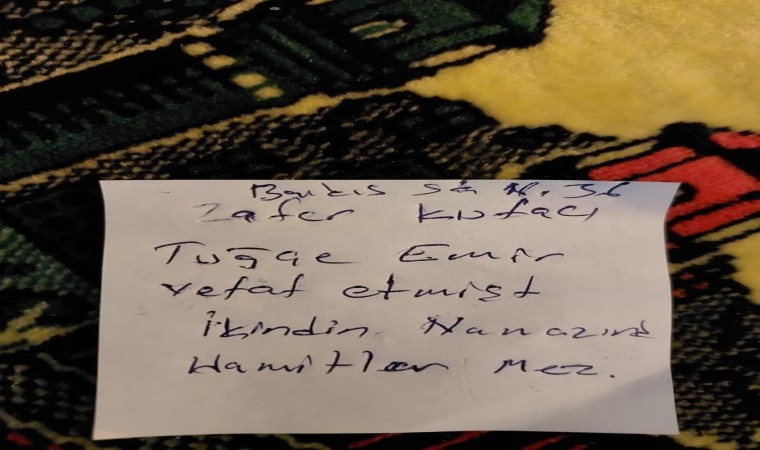 Barkıs Sk N. 36
Zafer Kufacı
Tuğçe Emir
vefaf etmişt
İkindin Namazınd
Hamitler Mez.